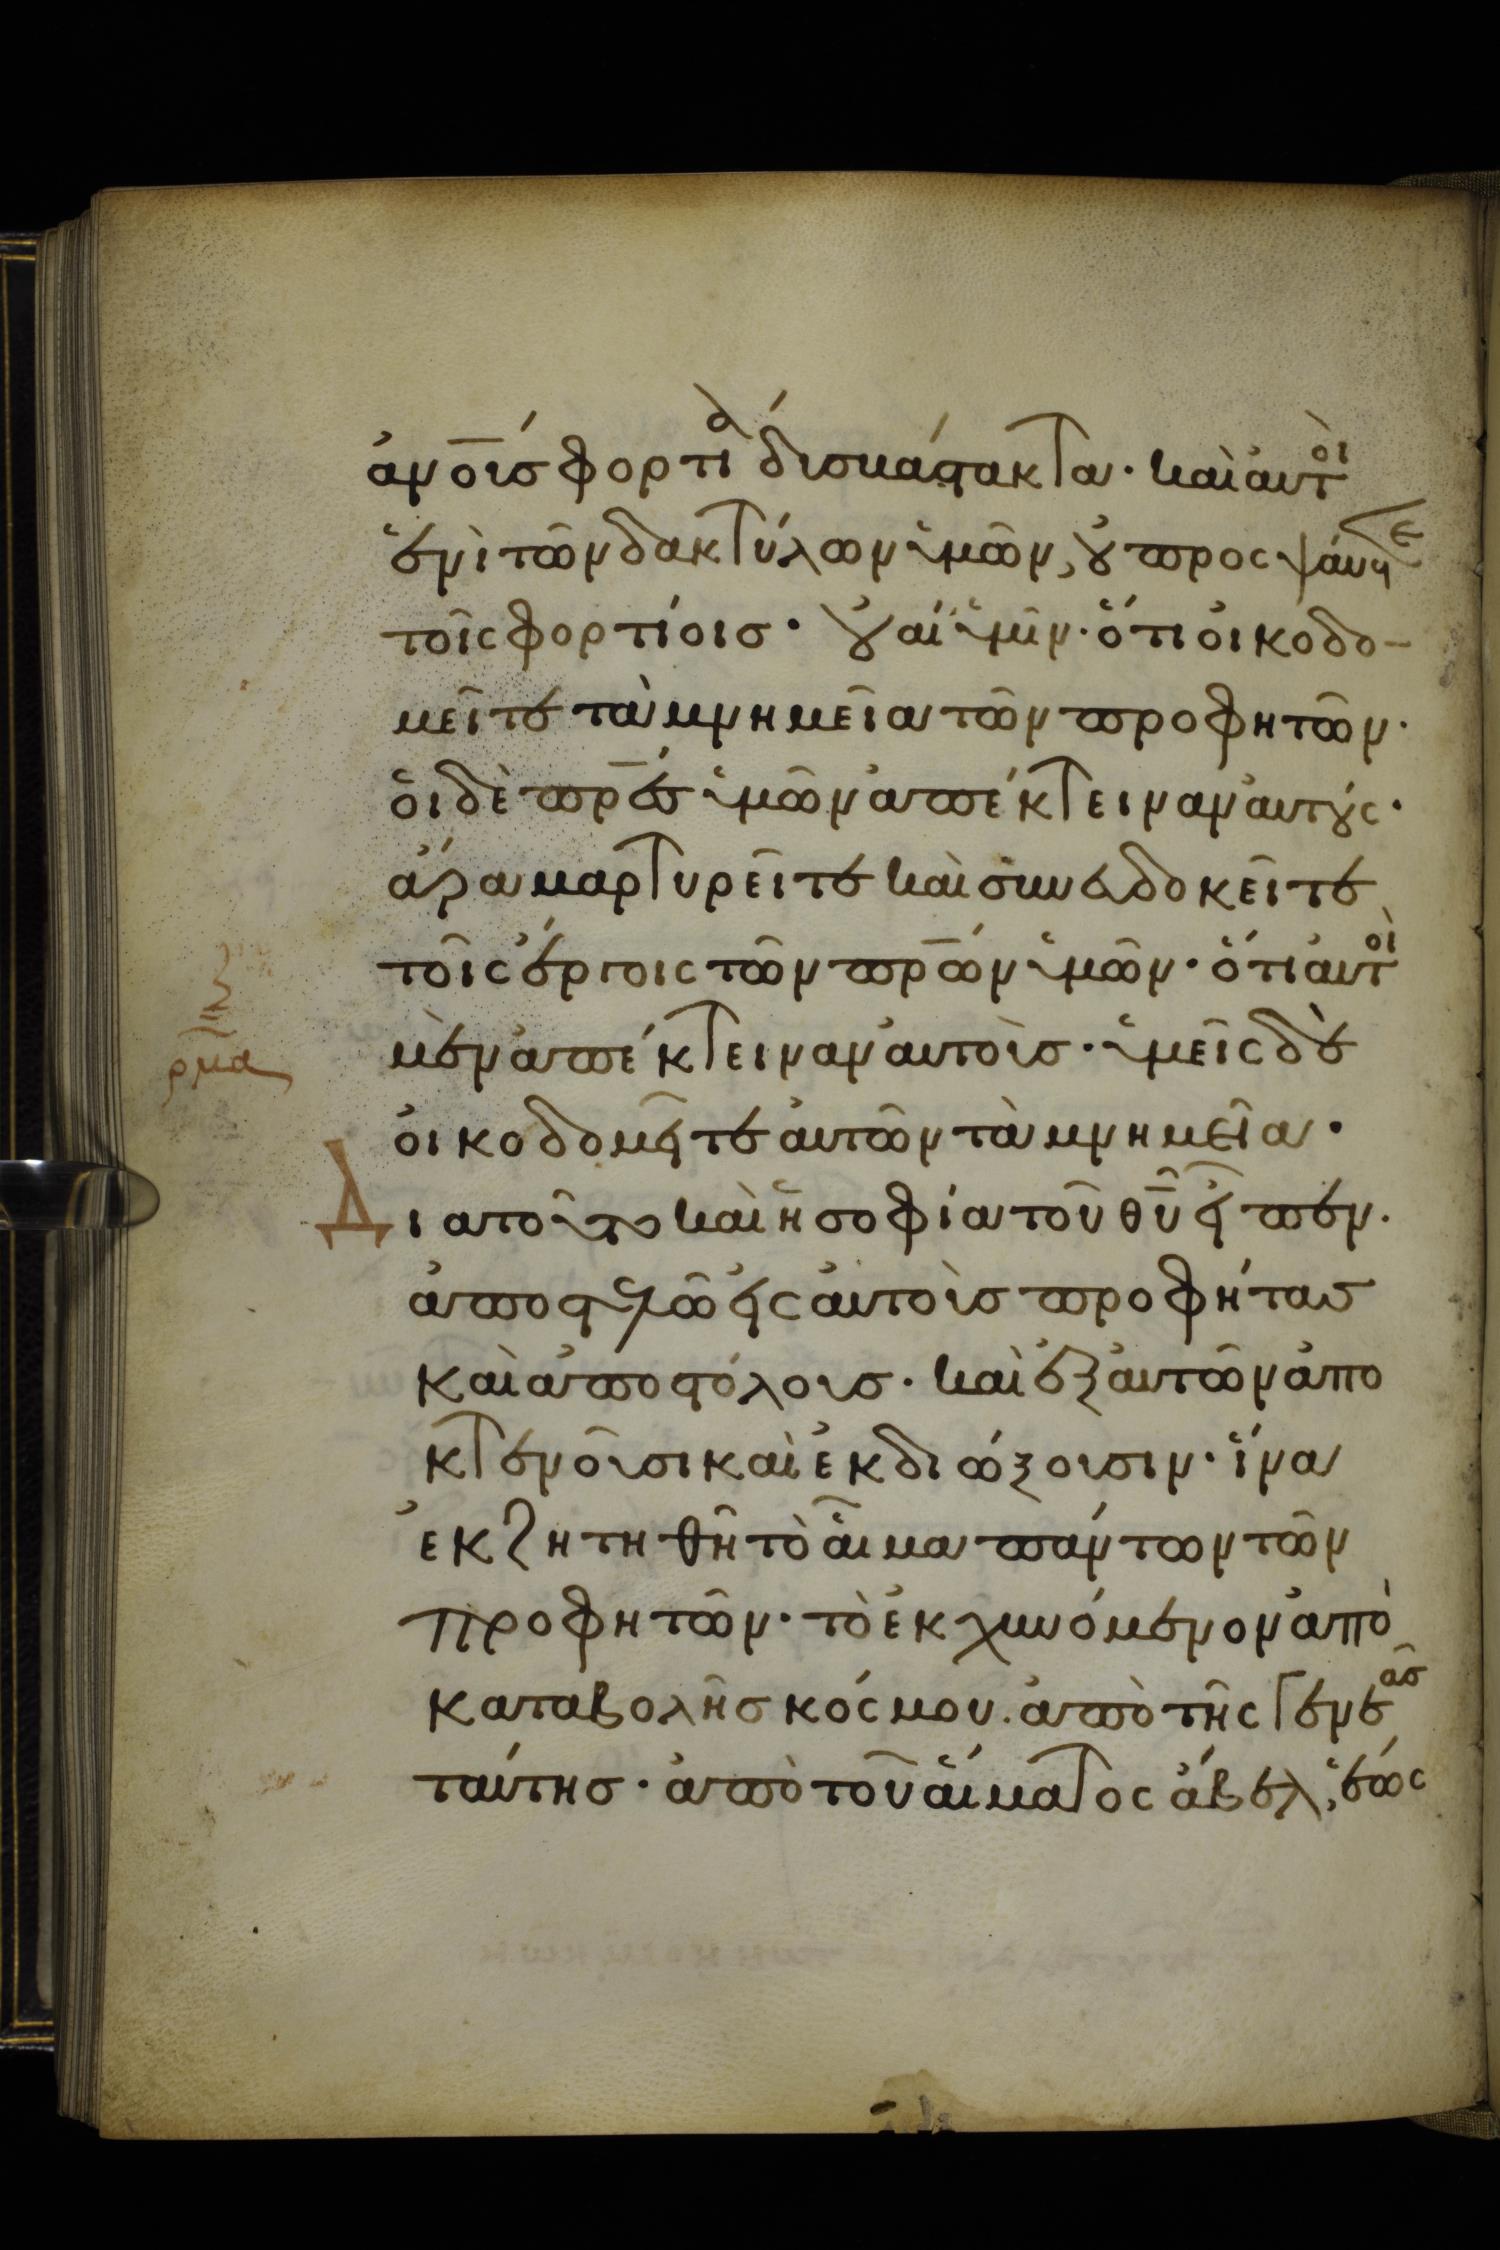 ἀν̅ο̅ι̅ς φορτία δυσβάστακτα· καὶ αὐτοὶ
ἑνὶ τῶν δακτύλων ὑμῶν, οὐ προσψαύετε
τοῖς φορτίοις· οὐαὶ ὑμῖν· ὅτι οἰκοδο-
μεῖτε τὰ μνημεῖα τῶν προφητῶν·
οἱ δὲ πρ̅ε̅ς ὑμῶν ἀπέκτειναν αὐτούς·
ἄρα μαρτυρεῖτε καὶ συνευδοκεῖτε
τοῖς ἔργοις τῶν πρ̅ω̅ν ὑμῶν· ὅτι αὐτοὶ
μὲν ἀπέκτειναν αὐτοὺς· ὑμεῖς δὲ
οἰκοδομεῖτε αὐτῶν τὰ μνημεῖα·
ρμα
Διατοῦτο καὶ ἡ σοφία τοῦ θ̅υ̅ εἶπεν·
ἀποστελῶ εἰς αὐτοὺς προφήτας
καὶ ἀποστόλους· καὶ ἐξ αὐτῶν ἀπο
κτενοῦσι καὶ ἐκδιώξουσιν· ἵνα
ἐκζητηθῆ τὸ αἷμα πάντων τῶν
προφητῶν· τὸ ἐκχυνόμενον ἀπὸ
καταβολῆς κόσμου. ἀπὸ τῆς γενεᾶς
ταύτης· ἀπὸ τοῦ αἵματος ἄβελ, ἕως